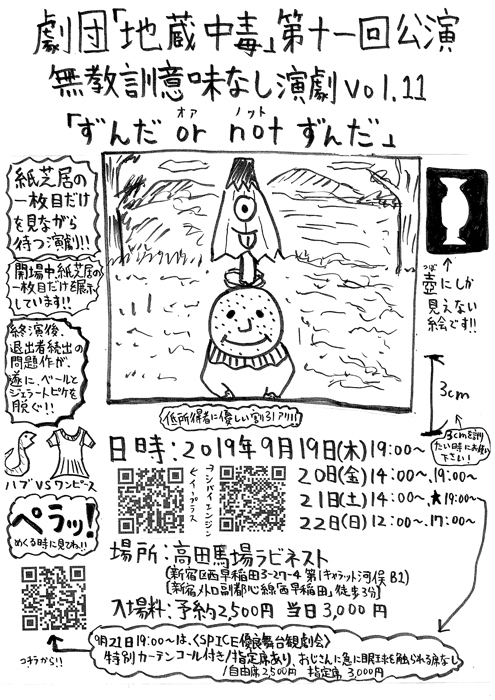 劇団「地蔵中毒」第十一回公演
無教訓意味なし演劇vol.11
オア ノット
「ずんだ or not ずんだ」
紙芝居の
一枚目だけ
を見ながら
待つ演劇!!
開場中紙芝居の
一枚目だけを展示
しています!!
終演後、
退出者続出の
問題作が、
遂に、ベールと
ジェラートピケを
脱ぐ!!
ハブVSワンピース
ペラッ!
めくる時に見てね!!
コチラから!!
つぼ
壺にしか
見えない
絵です!!
3cm
3cmを測り
たい時にお使い
下さい!
低所得者に優しい割引アリ!!
日時:2019年9月19日(木)19:00〜
20日(金)14:00〜、19:00〜
21日(土)14:00〜、★19:00〜
22日(日)12:00〜、17:00〜
イープラス
コシバイエンジン
場所:高田馬場ラビネスト
(新宿区西早稲田3-27-4 第1キャラット河俣B1)
(新宿メトロ副都心線「西早稲田」徒歩3分)
入場料:予約2,500円 当日3,000円
9月21日19:00〜は、〈SPICE優良舞台観劇会〉
特別カーテンコール付き/指定席あり、おじさんに急に眼球を触られる席なし
/自由席2500円 指定席3,000円